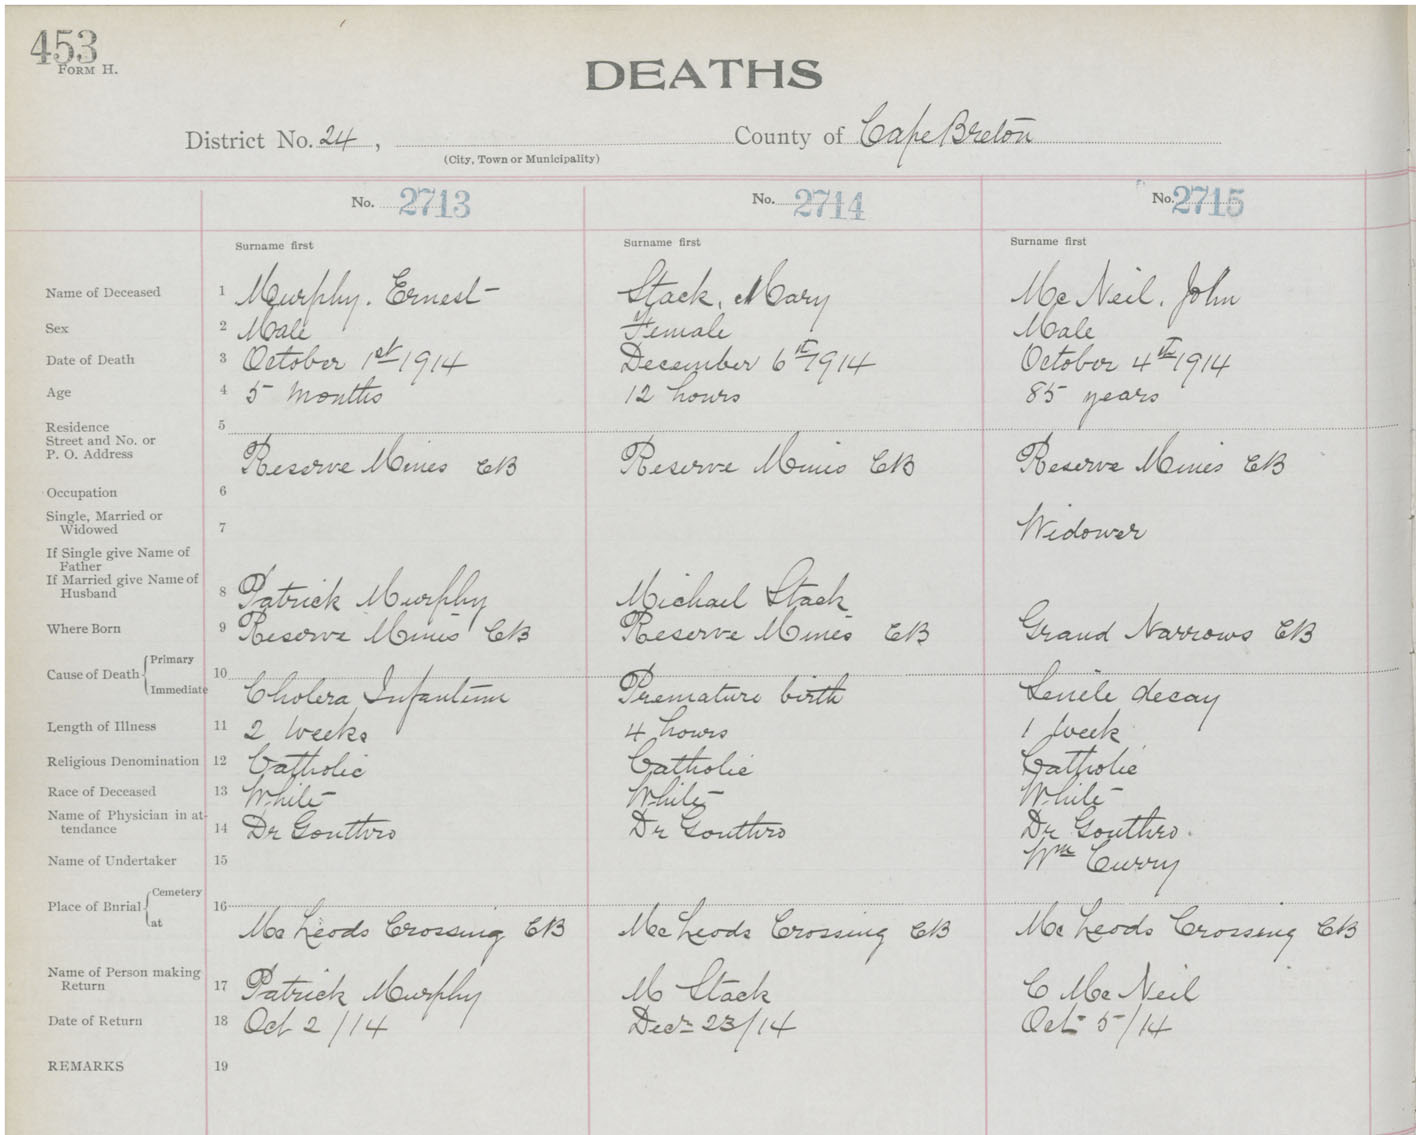 453
FORM H.
DEATHS
District No. 24, County of Cape Breton
(City, Town or Municipality)
No. 2713 No. 2714 No. 2715
Surname first Surname first Surname first
Name of Deceased 1 Murphy. Ernest Stack, Mary Mc Neil, John
Sex 2 Male Female Male
Date of Death 3 October 1st 1914 December 6th 1914 October 4th 1914
Age 4 5 months 12 hours 85 years
Residence 5
Street and No. or
P. O. Address Reserve Mines CB Reserve Mines CB Reserve Mines CB
Occupation 6
Single, Married or
Widowed 7 Widower
If Single give Name of
Father
If Married give Name of
Husband 8 Patrick Murphy Michael Stack
Where Born 9 Reserve Mines CB Reserve Mines CB Grand Narrows CB
Cause of Death Primary 10
Immediate Cholera Infantum Premature birth Senile decay
Length of Illness 11 2 weeks 4 hours 1 week
Religious Denomination 12 Catholic Catholic Catholic
Race of Deceased 13 White White White
Name of Physician in at-
tendance 14 Dr Gouthro Dr Gouthro Dr Gouthro.
Name of Undertaker 15 Wm Curry
Place of Bnrial Cemetery 16
at Mc Leods Crossing CB Mc Leods Crossing CB Mc Leods Crossing CB
Name of Person making
Return 17 Patrick Murphy M Stack C Mc Neil
Date of Return 18 Oct 2/14 Decr 23/14 Oct 5/14
REMARKS 19